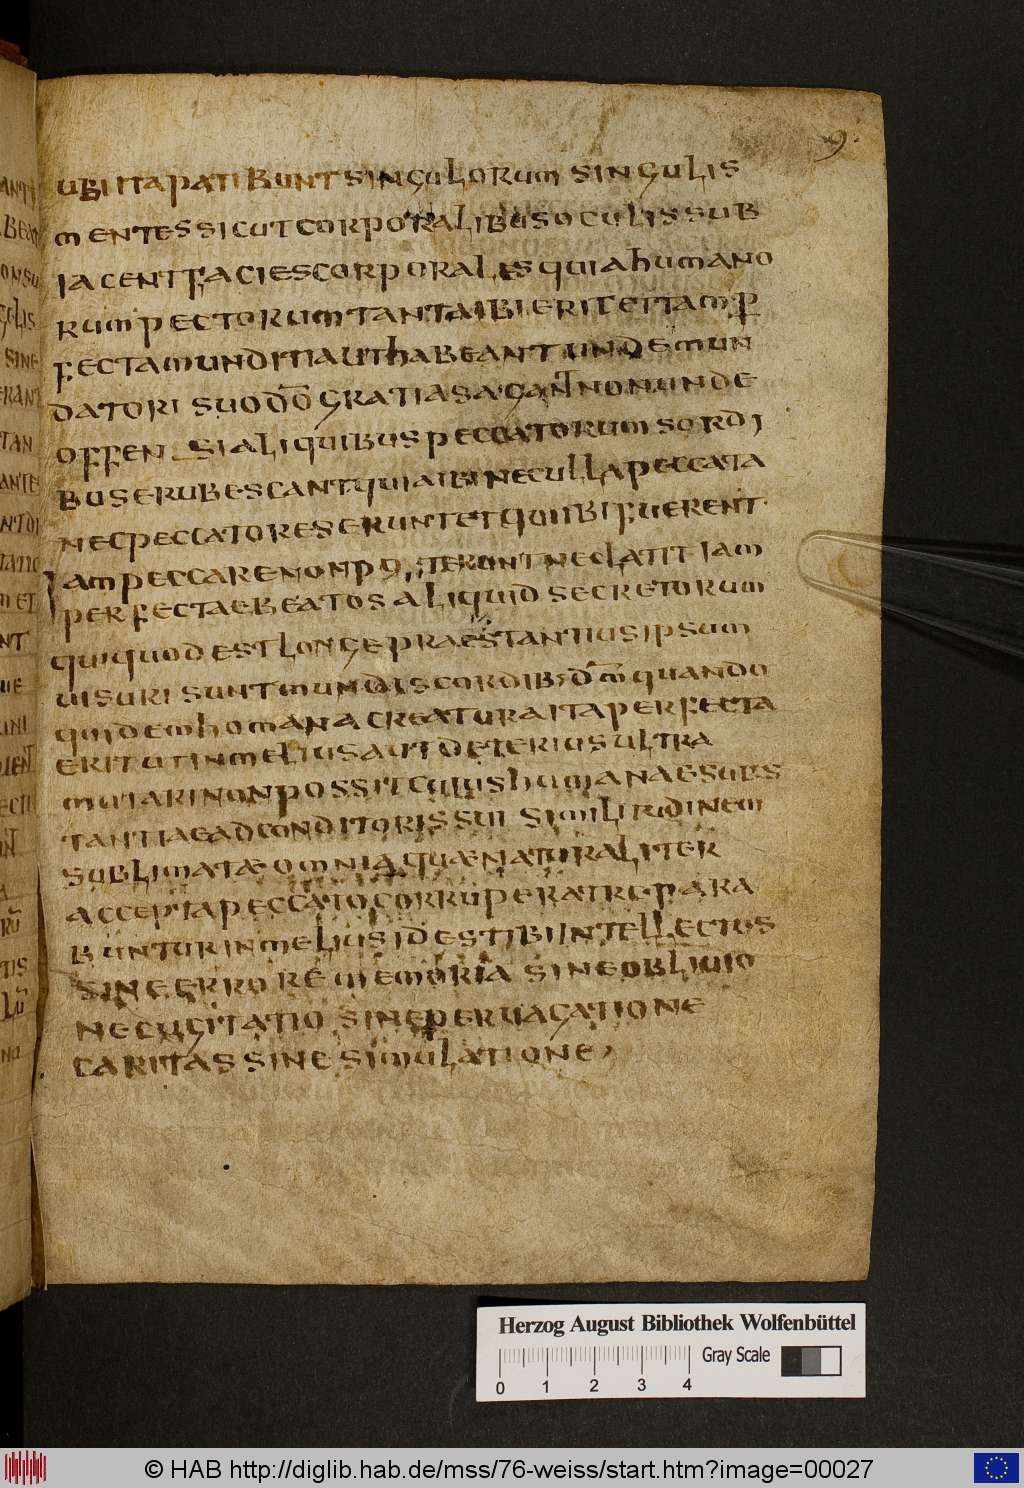 9.
ubi ita patibunt singulorum singulis
mentes sicut corporalibus oculis sub
iacent facies corporales quia humano
rum pectorum tanta ibi erit et tam p
fecta munditia ut habeant unde mun
datori suo dō gratias agant non unde
offen si aliquibus peccatorum sordi
bus erubescant quia ibi nec ulla peccata
nec peccatores erunt et qui ibi fuerent
iam peccare non poterunt nec latit iam
perfectae beatos aliquid secretorum
qui quod est longe praestantius ipsum
uisuri sunt mundis cordib; dm̄ quando
quidem homana creatura ita perfecta
erit ut in melius aut deterius ultra
mutari non possit cuius humanae subs
tantiae ad conditoris sui similitudinem
sublimatae omnia quae naturaliter
accepta peccato corruperat repara
buntur in melius id est ibi intellectus
sine errore memoria sine obliuio
ne cugitatio sine peruagatione
caritas sine simulatione
Herzog August Bibliothek Wolfenbüttel
Gray Scale
0 1 2 3 4
© HAB http://diglib.hab.de/mss/76-weiss/start.htm?image=00027